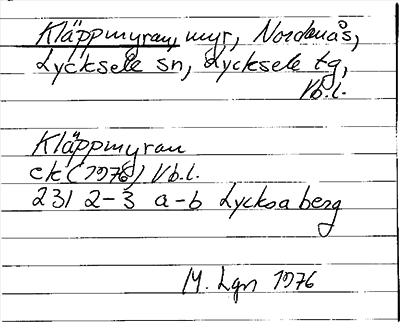 Kläppmyran, myr, Nordanås,
Lycksele sn, Lycksele tg,
Vb.l.
Kläppmyran
ek (1976) Vb.l.
231 2-3 a-b Lycksaberg
M. Lgn 1976